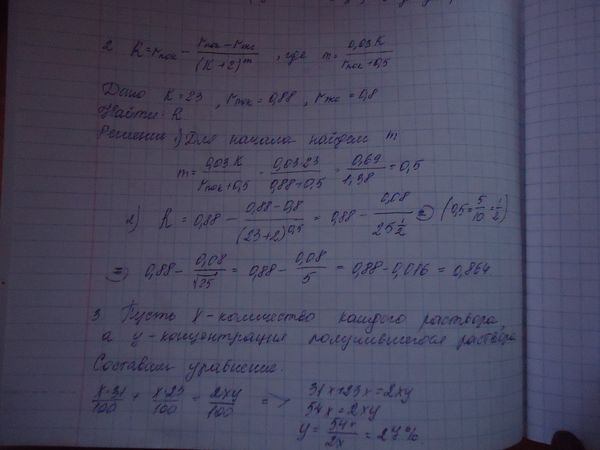 2 R = rпок - (rпок - rэкс)/(K+2)^m, где m = 0,03K/(rпок+0,5)
Дано K=23, rпок=0,88, rэкс=0,8
Найти: R
Решение 1) Для начала найдем m
m = 0,03K/(rпок+0,5) = 0,03·23/(0,88+0,5) = 0,69/1,38 = 0,5
2) R = 0,88 - (0,88-0,8)/(23+2)^0,5 = 0,88 - 0,08/25^(1/2) = (0,5=5/10=1/2)
= 0,88 - 0,08/√25 = 0,88 - 0,08/5 = 0,88-0,016 = 0,864
3 Пусть x-количество каждого раствора,
а y-концентрация получившегося раствора
Составим уравнение.
x·31/100 + x·23/100 = 2xy/100 => 31x+23x=2xy
54x=2xy
y = 54x/2x = 27%